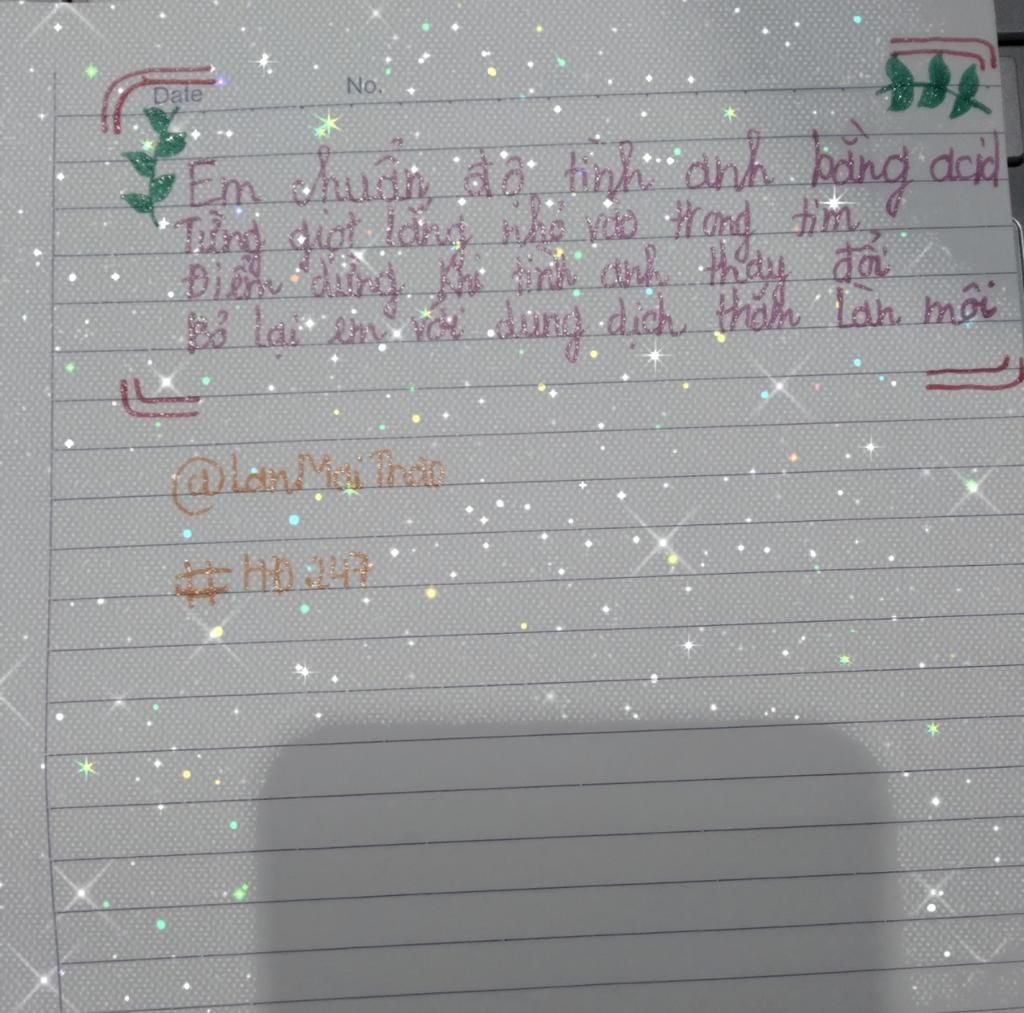 Date No.
Em chuẩn độ tình anh bằng acid
Từng giọt lặng nhỏ vào trong tim
Điểm dừng khi tình anh thay đổi
Bỏ lại em với dung dịch thấm làn môi
@LanMaiThao
#HĐ.247